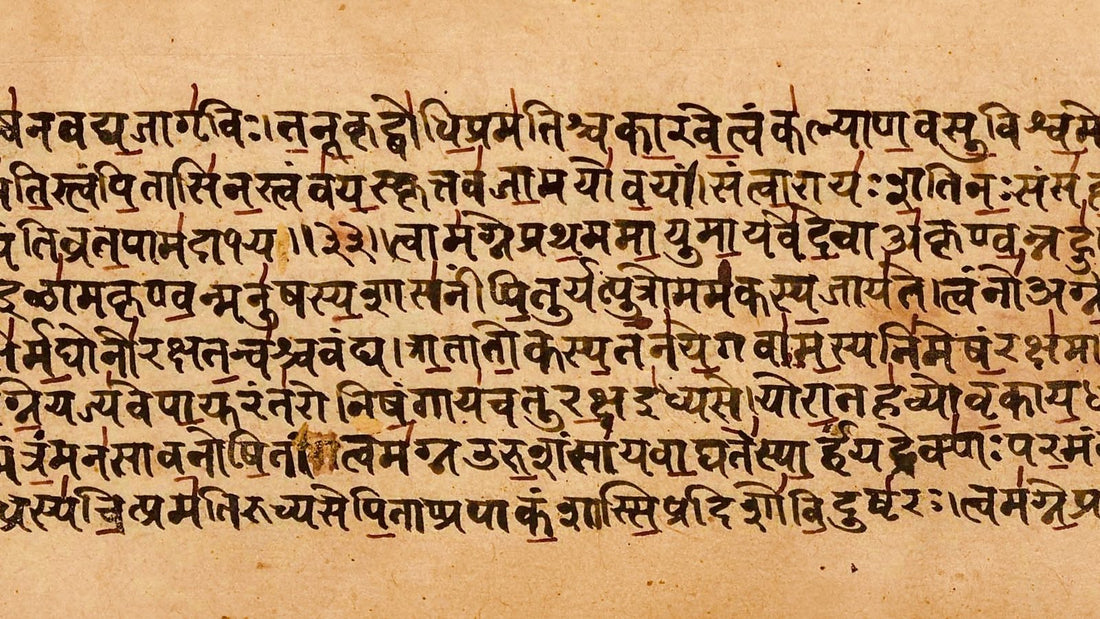 नवद्यजागृविः।तनूकृद्बोधिप्रमतिश्चकारवेत्वंकल्याणवसुविश्वमो
तिस्त्वंपितासिनस्त्वंवयस्कृत्तवजामयोवयं॥संत्वारायःशतिनःसंसह
तिव्रतपामदाभ्य॥३३॥त्वामग्नेप्रथममायुमायवेदेवाअकृण्वन्नहु
इळामकृण्वन्मनुषस्यशासनींपितुर्यत्पुत्रोममकस्यजायते।त्वंनोअग्ने
र्मघोनोरक्षतन्वश्चवंद्य।त्रातातोकस्यतनयेगवामस्यनिमेषंरक्षमा
ग्नेयज्यवेपायुरंतरोनिषंगायचतुरक्षइध्यसे।योरातहव्योवृकायधा
मंत्रंमनसावनोषितं॥त्वमग्नउरुशंसायवाघतेस्पार्हंयद्रेक्णःपरमं
ध्रस्यचित्प्रमतिरुच्यसेपिताप्रपाकंशास्सिप्रदिशोविदुष्टरः।त्वमग्नेप्र